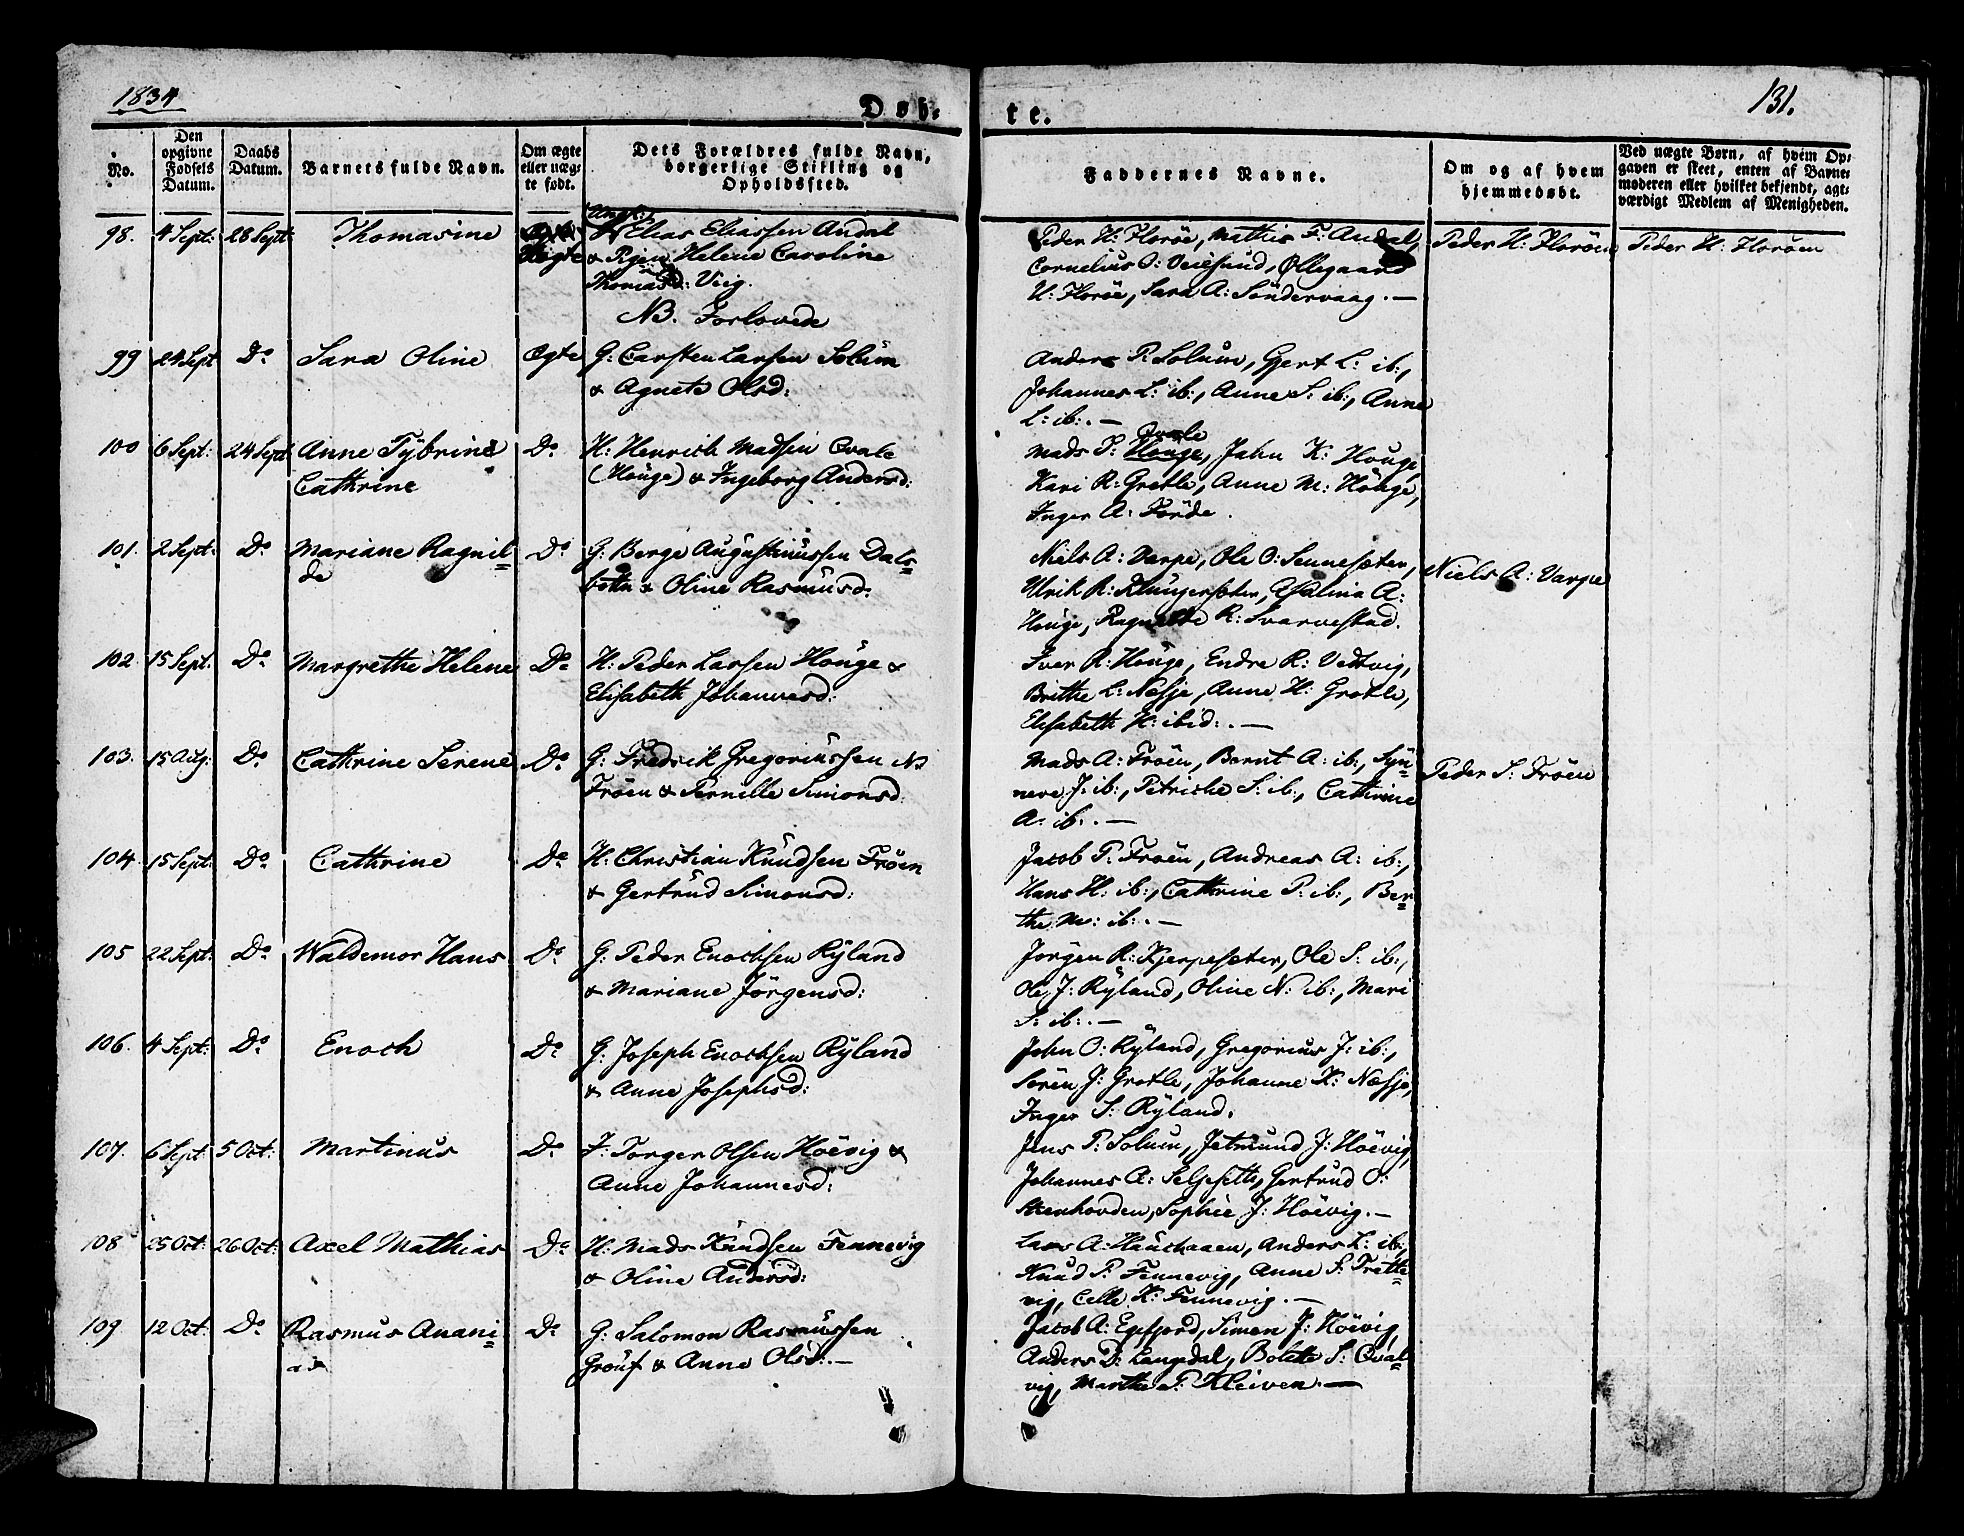 1834
131.
Døb-
te.
No.
Den opgivne Fødsels Datum.
Daabs Datum.
Barnets fulde Navn.
Om ægte eller uægte født.
Dets Forældres fulde Navn, borgerlige Stilling og Opholdssted.
Faddernes Navne.
Om og af hvem hjemmedøbt.
Ved uægte Børn, af hvem Opgaven er skeet, enten af Barnemoderen eller hvilket bekjendt, agtværdigt Medlem af Menigheden.
98. 4 Sept: 28 Sept: Thomasine
Elias Eliassen Andal
& Pigen Helene Caroline
Thomasd: Viig.
NB. Forlovede
Peder H: Florøe, Mathis P: Andal,
Cornelius O: Veiesund, Øllegaard
U: Florøe, Sara A: Söndervaag. —
Peder H: Florøen
Peder H: Florøen
99 24 Sept Do Sara Oline Ægte G: Carsten Larsen Solum
& Agnete Olsd:
Anders P: Solum, Gjert L: ib:,
Johannes L: ib:, Anne S: ib:, Anne
L: ib:. —
100 6 Sept: 24 Sept Anne Tybrine
Cathrine
Do H: Henrich Madsen Qvale
(Houge) & Ingeborg Andersd:
Mads P: Houge, John K: Houge,
Kari R: Grotle, Anne M: Houge,
Inger A: Förde.
101. 2 Sept: Do Mariane Ragnil=
de
Do G: Berge Augustinussen Dals=
botn & Oline Rasmusd:
Niels A: Varpe, Ole O: Sennesæter,
Ulrik R: Klungersæter, Thalina A:
Houge, Ragnilde R: Svarvestad.
Niels A: Varpe
102 15 Sept. Do Margrethe Helene Do H: Peder Larsen Houge &
Elisabeth Johannesd:
Iver R: Houge, Endre R: Vedtvig,
Brithe L: Nesje, Anne H: Grotle,
Elisabeth H: ibid:. —
103. 15 Aug: Do Cathrine Serene Do G: Fredrik Gregoriussen
Fröen & Pernille Simonsd:
Mads A: Fröen, Bernt A: ib:, Syn=
neve J: ib:, Petriche S: ib:, Cathrine
A: ib:. —
Peder S: Fröen
104 15 Sept: Do Cathrine Do H: Christian Knudsen Fröen
& Gertrud Simonsd:
Jacob P: Fröen, Andreas A: ib:,
Hans H: ib:, Cathrine P: ib:, Ber=
the M: ib:. —
105 22 Sept: Do Waldemor Hans Do G: Peder Enochsen Ryland
& Mariane Jörgensd:
Jörgen R: Kjerpesæter, Ole S: ib:,
Ole J: Ryland, Oline N: ib:, Mari
S: ib:. —
106. 4 Sept: Do Enoch Do G: Joseph Enochsen Ryland
& Anne Josephsd:
John O: Ryland, Gregorius J: ib:,
Serén J: Grotle, Johanne K: Næsje,
Inger S: Ryland.
107. 6 Sept. 5 Oct: Martinus Do J: Torger Olsen Höevig &
Anne Johannesd:
Jens P: Solum, Jetmund J: Höevig,
Johannes A: Seljesette, Gertrud O:
Steenhovden, Sophie J: Höevig. —
108 25 Oct: 26 Oct: Axel Mathias Do H: Mads Knudsen Fennevig
& Oline Andersd:
Lars A: , Anders L: ib:,
Knud P: Fennevig, Anne S: Trette=
vig, Celle K: Fennevig. —
109 12 Oct: Do Rasmus Anani=
as
Do G: Salomon Rasmussen
Gröuf & Anne Olsd:. —
Jacob A: Egefjord, Simen J: Höevig,
Anders D: Langedal, Bolette S: Qval=
vig, Marthe P: Kleiven. —